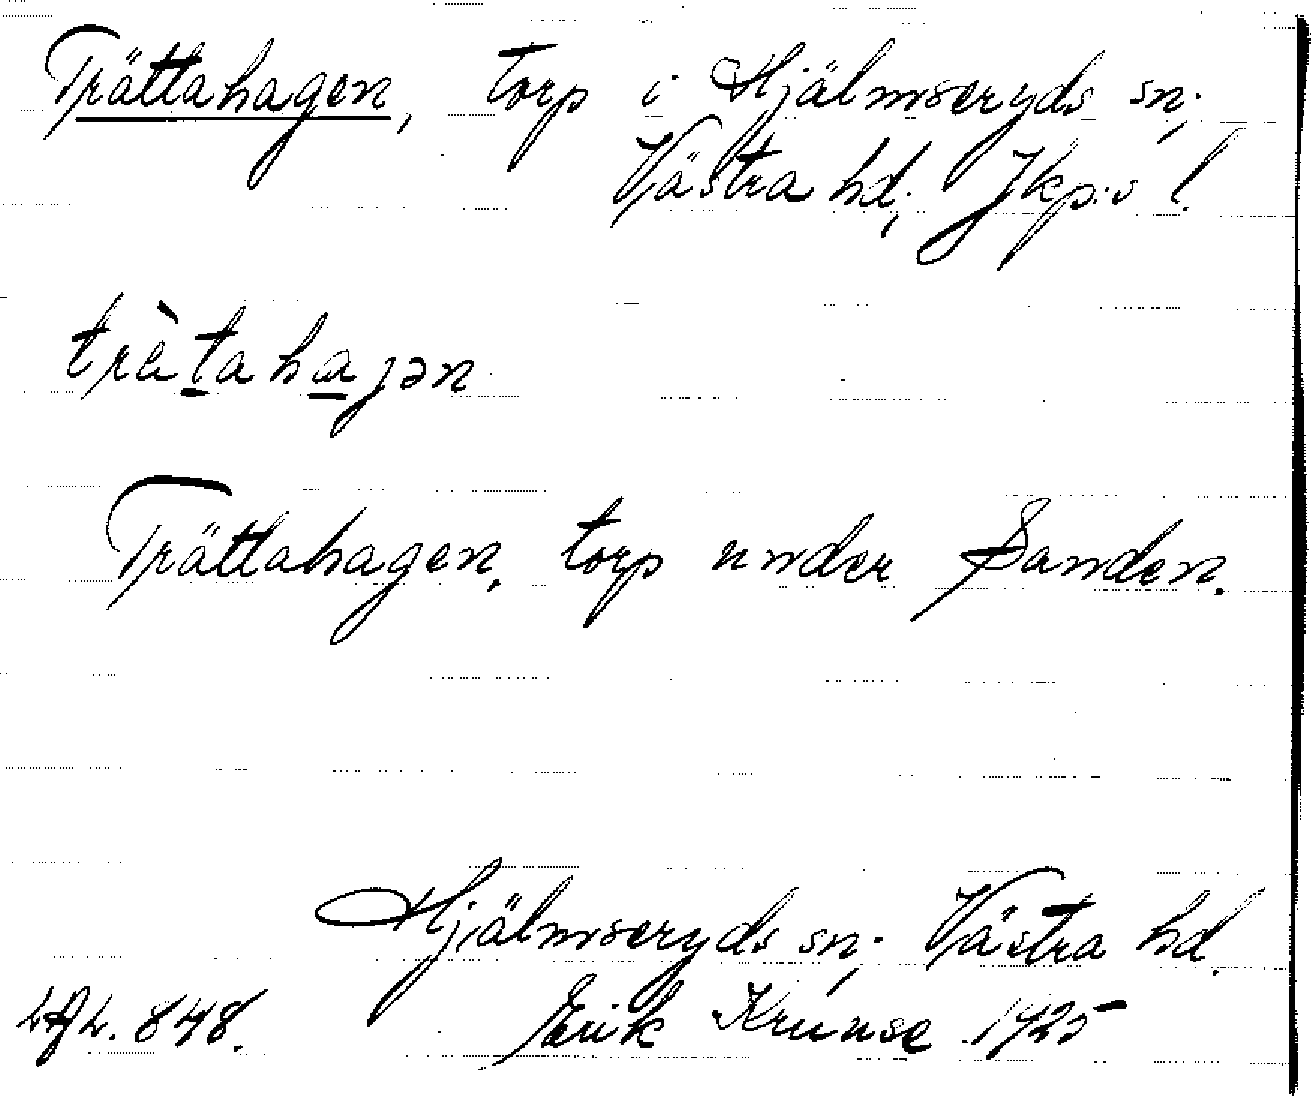 Trättahagen, torp i Hjälmseryds sn;
Västra hd; Jkp:s l.
trètahaȷən
Trättahagen, torp under Sanden.
Hjälmseryds sn; Västra hd.
LAL. 848. Erik Kruuse 1925